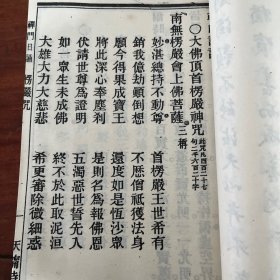 ○大佛頂首楞嚴神咒
南無楞嚴會上佛菩薩 三稱
妙湛總持不動尊 首楞嚴王世希有
銷我億劫顛倒想 不歷僧祇獲法身
願今得果成寶王 還度如是恆沙眾
將此深心奉塵剎 是則名為報佛恩
伏請世尊為證明 五濁惡世誓先入
如一眾生未成佛 終不於此取泥洹
大雄大力大慈悲 希更審除微細惑
禪門日誦 楞嚴咒